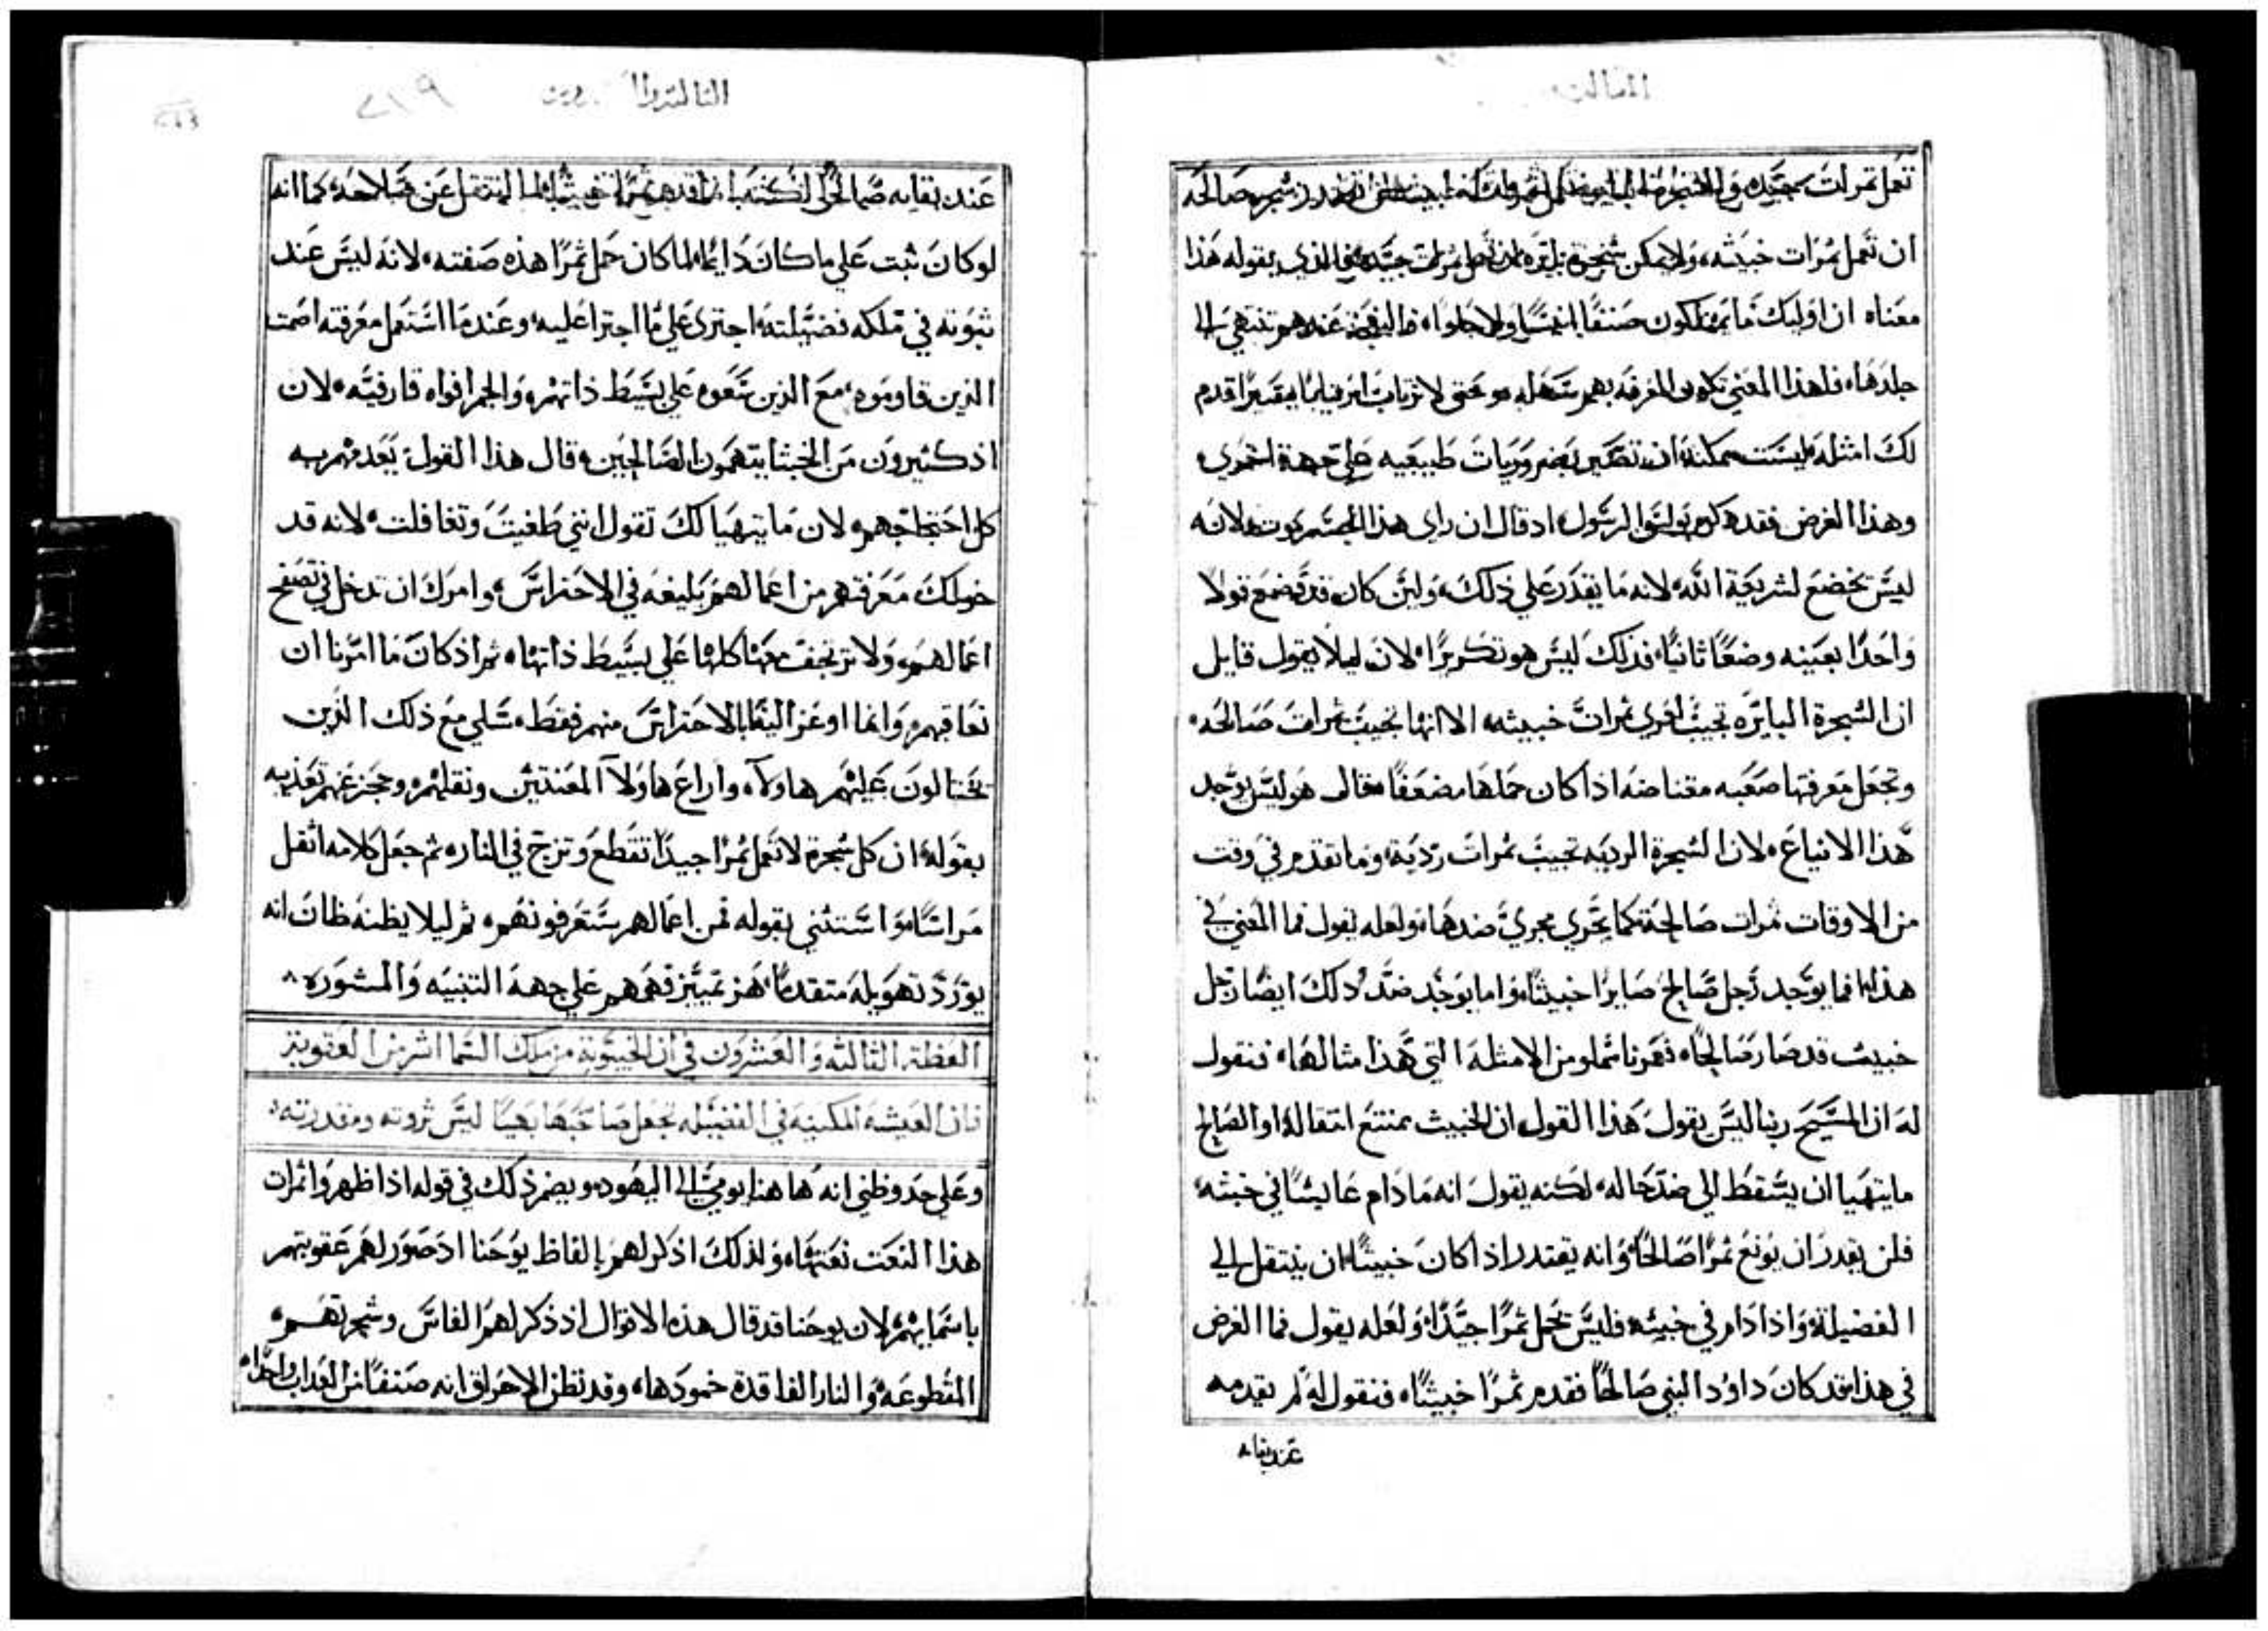 الثالثة
تعمل ثمرات جيده والشجرة ان تعمل شجره صالحه
ان تعمل ثمرات خبيثه، ولا يمكن شجرة بايره ان تعمل ثمرات جيده فالذي يقوله هذا
معناه ان اوليك ما يمتلكون صنفًا انيسًا ولا حلوًا، فالوداعة عندهم تنتهي الى
جلدها، فلهذا المعنى تكون المعرفه بهم سهله، وحتى لا ترتاب ارتيابًا يسيرًا قدم
لك امثله ليست ممكنه ان تصير بضروريات طبيعيه على جهة اخرى
وهذا الغرض فقد ذكره بولس الرسول، اذ قال ان راي هذا الجسم موت، لانه
ليس يخضع لشريعة الله، لانه ما يقدر على ذلك، ولين كان قد وضع قولًا
واحدًا بعينه وضعًا ثانيًا، فذلك ليس هو تكريرًا، لان ليلا يقول قايل
ان الشجرة البايره تجيب لعمري ثمرات خبيثه، الا انها تجيب ثمرات صالحه،
وتجعل معرفتها صعبه مقتناصه اذا كان حملها مضعفًا، فقال هو ليس يوجد
هذا الاتباع، لان الشجرة الرديه تجيب ثمرات رديه، وما تقدم في وقت
من الاوقات ثمرات صالحه كما يجري مجرى ضدها، ولعله يقول فما المعنى في
هذا، افما يوجد رجل صالح صايرًا خبيثًا، واما يوجد ضد ذلك ايضًا رجل
خبيث قد صار صالحًا، فعمرنا مملو من الامثلة التي هذا مثالها، فنقول
له ان المسيح ربنا ليس يقول هذا القول ان الخبيث ممتنع انتقاله او الصالح
ما يتهيا ان يسقط الى ضد حاله، لكنه يقول انه ما دام عايشًا في خبثه،
فلن يقدر ان يونع ثمرًا صالحًا، وانه يقتدر اذا كان خبيثًا، ان ينتقل الى
الفضيلة، واذا دام في خبثه فليس يحمل ثمرًا جيدًا، ولعله يقول فما الغرض
في هذا، فقد كان داوود النبي صالحًا فقدم ثمرًا خبيثًا، فنقول له لم يقدمه
عند بقايه
الثالثة والعشرون
٢١٩
عند بقايه صالحًا لكنه انما قدم ثمرًا خبيثًا لما انتقل عن صلاحه، كما انه
لو كان ثبت على ما كان دايمًا، لما كان حمل ثمرًا هذه صفته، لانه ليس عند
ثبوته في ملكه فضيلته، اجترى على ما اجترا عليه، وعندما استعمل معرفته اصمت
الذين قاوموه، مع الذين سعوه على بسيط ذاتهم، والجم افواه قارفيه، لان
اذ كثيرون من الخبثا يتهمون الصالحين، قال هذا القول يعدمهم به
كل احتجاجهم، لان ما يتهيا لك تقول انني طغيت وتغافلت، لانه قد
خولك معرفتهم من اعمالهم بليغه في الاحتراس، وامرك ان تدخل في تصفح
اعمالهم، ولا ترتجف منها كلها على بسيط ذاتها، ثم اذ كان ما امرنا ان
نعاقبهم، وانما اوعز الينا بالاحتراس منهم فقط، سلى مع ذلك الذين
يحتالون عليهم هاولاء، واراع هاولا المعتدين ونقلهم، وحجز عنهم تعذيبه
بقوله، ان كل شجرة لا تعمل ثمرًا جيدًا تقطع وتزج في النار، ثم جعل كلامه اثقل
مراسًا، واستثنى بقوله فمن اعمالهم ستعرفونهم، ثم ليلا يظنه ظان انه
يورد تهويله متقدمًا، هز تمييز فهمهم على جهة التنبيه والمشوره
العظة الثالثه والعشرون في ان الخيبوبة من ملك السما اشر من العقوبة
فان العيشه المكينه في الفضيله تجعل صاحبها بهيًا ليس ثروته ومقدرته،
وعلى حد وظني انه هاهنا يومي الى اليهود، ويضمر ذلك في قوله اذا ظهروا ثمرات
هذا النعت نعتها، ولذلك اذكر لهم بالفاظ يوحنا اذ صور لهم عقوبتهم
باسمايهم، لان يوحنا قد قال هذه الاقوال اذ ذكر لهم الفاس وشجرتهم،
المقطوعه، والنار الفاقدة خمودها، وقد تظن الاحراق انه صنفًا من العذاب واحدًا،